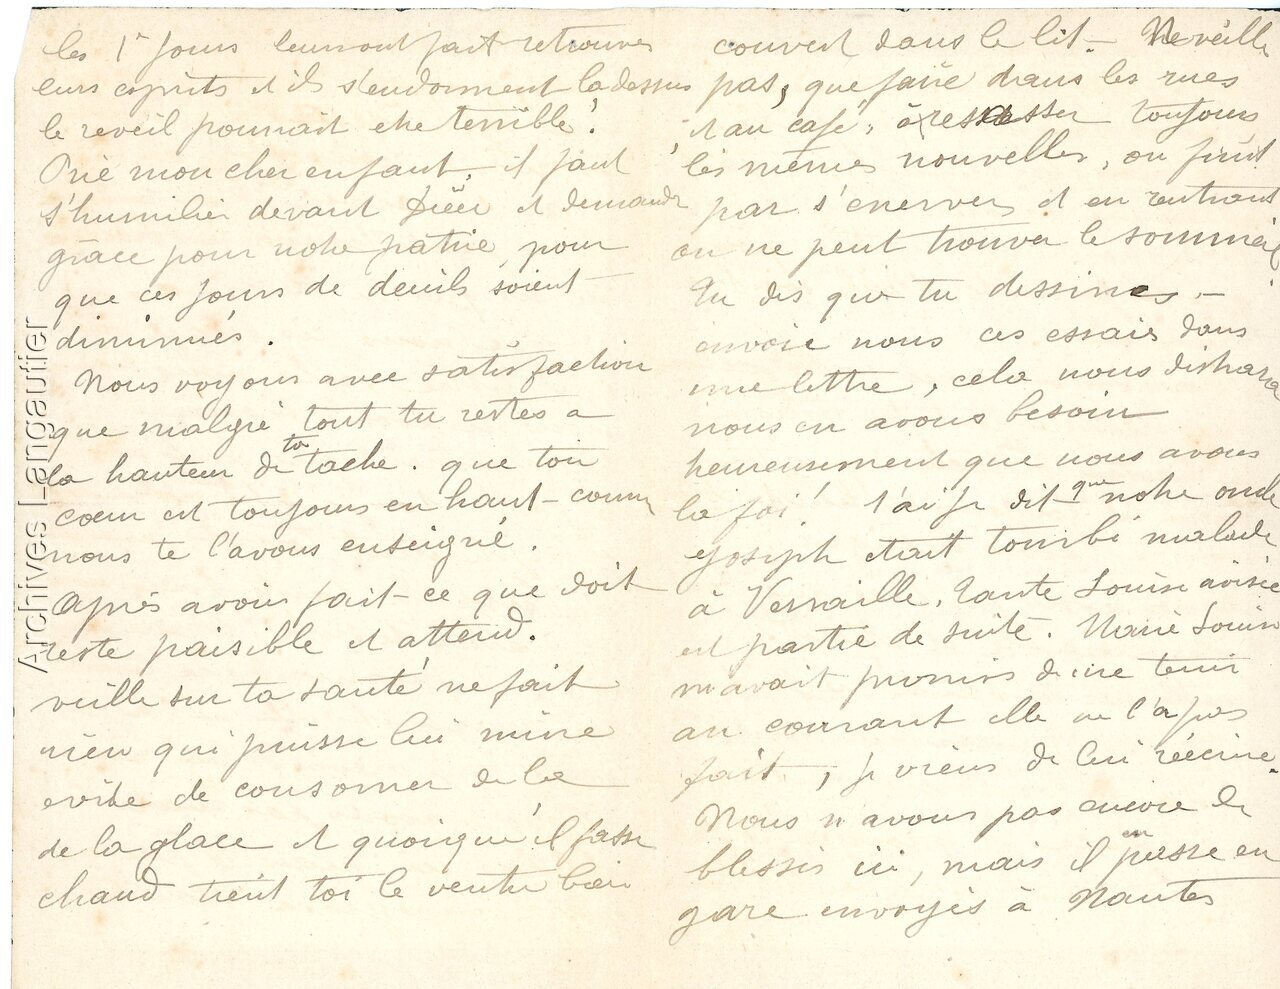 les 1r jours leur ont fait retrouver
leurs esprits et ils s'endorment la dessus
le reveil pourrait etre terrible !
Prie mon cher enfant, il faut
s'humilier devant Dieu et demander
grâce pour notre patrie, pour
que ces jours de deuils soient
diminués.
Nous voyons avec satisfaction
que malgré tout tu restes a
la hauteur de ta tache. que ton
cœur est toujours en haut comme
nous te l'avons enseigné.
Après avoir fait ce que doit
reste paisible et attend.
veille sur ta santé ne fait
rien qui puisse lui nuire
evite de consomer de la
de la glace et quoique il fasse
chaud tient toi le ventre bien
couvert dans le lit. Ne veille
pas, que faire dans les rues
et au café, à ressasser toujours
les mêmes nouvelles, on finit
par s'enerver et en rentrant
on ne peut trouver le sommeil
Tu dis que tu dessines -
envoie nous ces essais dans
une lettre, cela nous distraira
nous en avons besoin
heureusement que nous avons
la foi ! t'ai je dit que notre oncle
Joseph etait tombé malade
à Versaille, Tante Louise avisée
est partie de suite. Marie Louise
m'avait promis de me tenir
au courant elle ne l'a pas
fait, je viens de lui réécrire.
Nous n'avons pas encore de
blessés ici, mais il en passe en
gare envoyés à Nantes
Archives Langautier